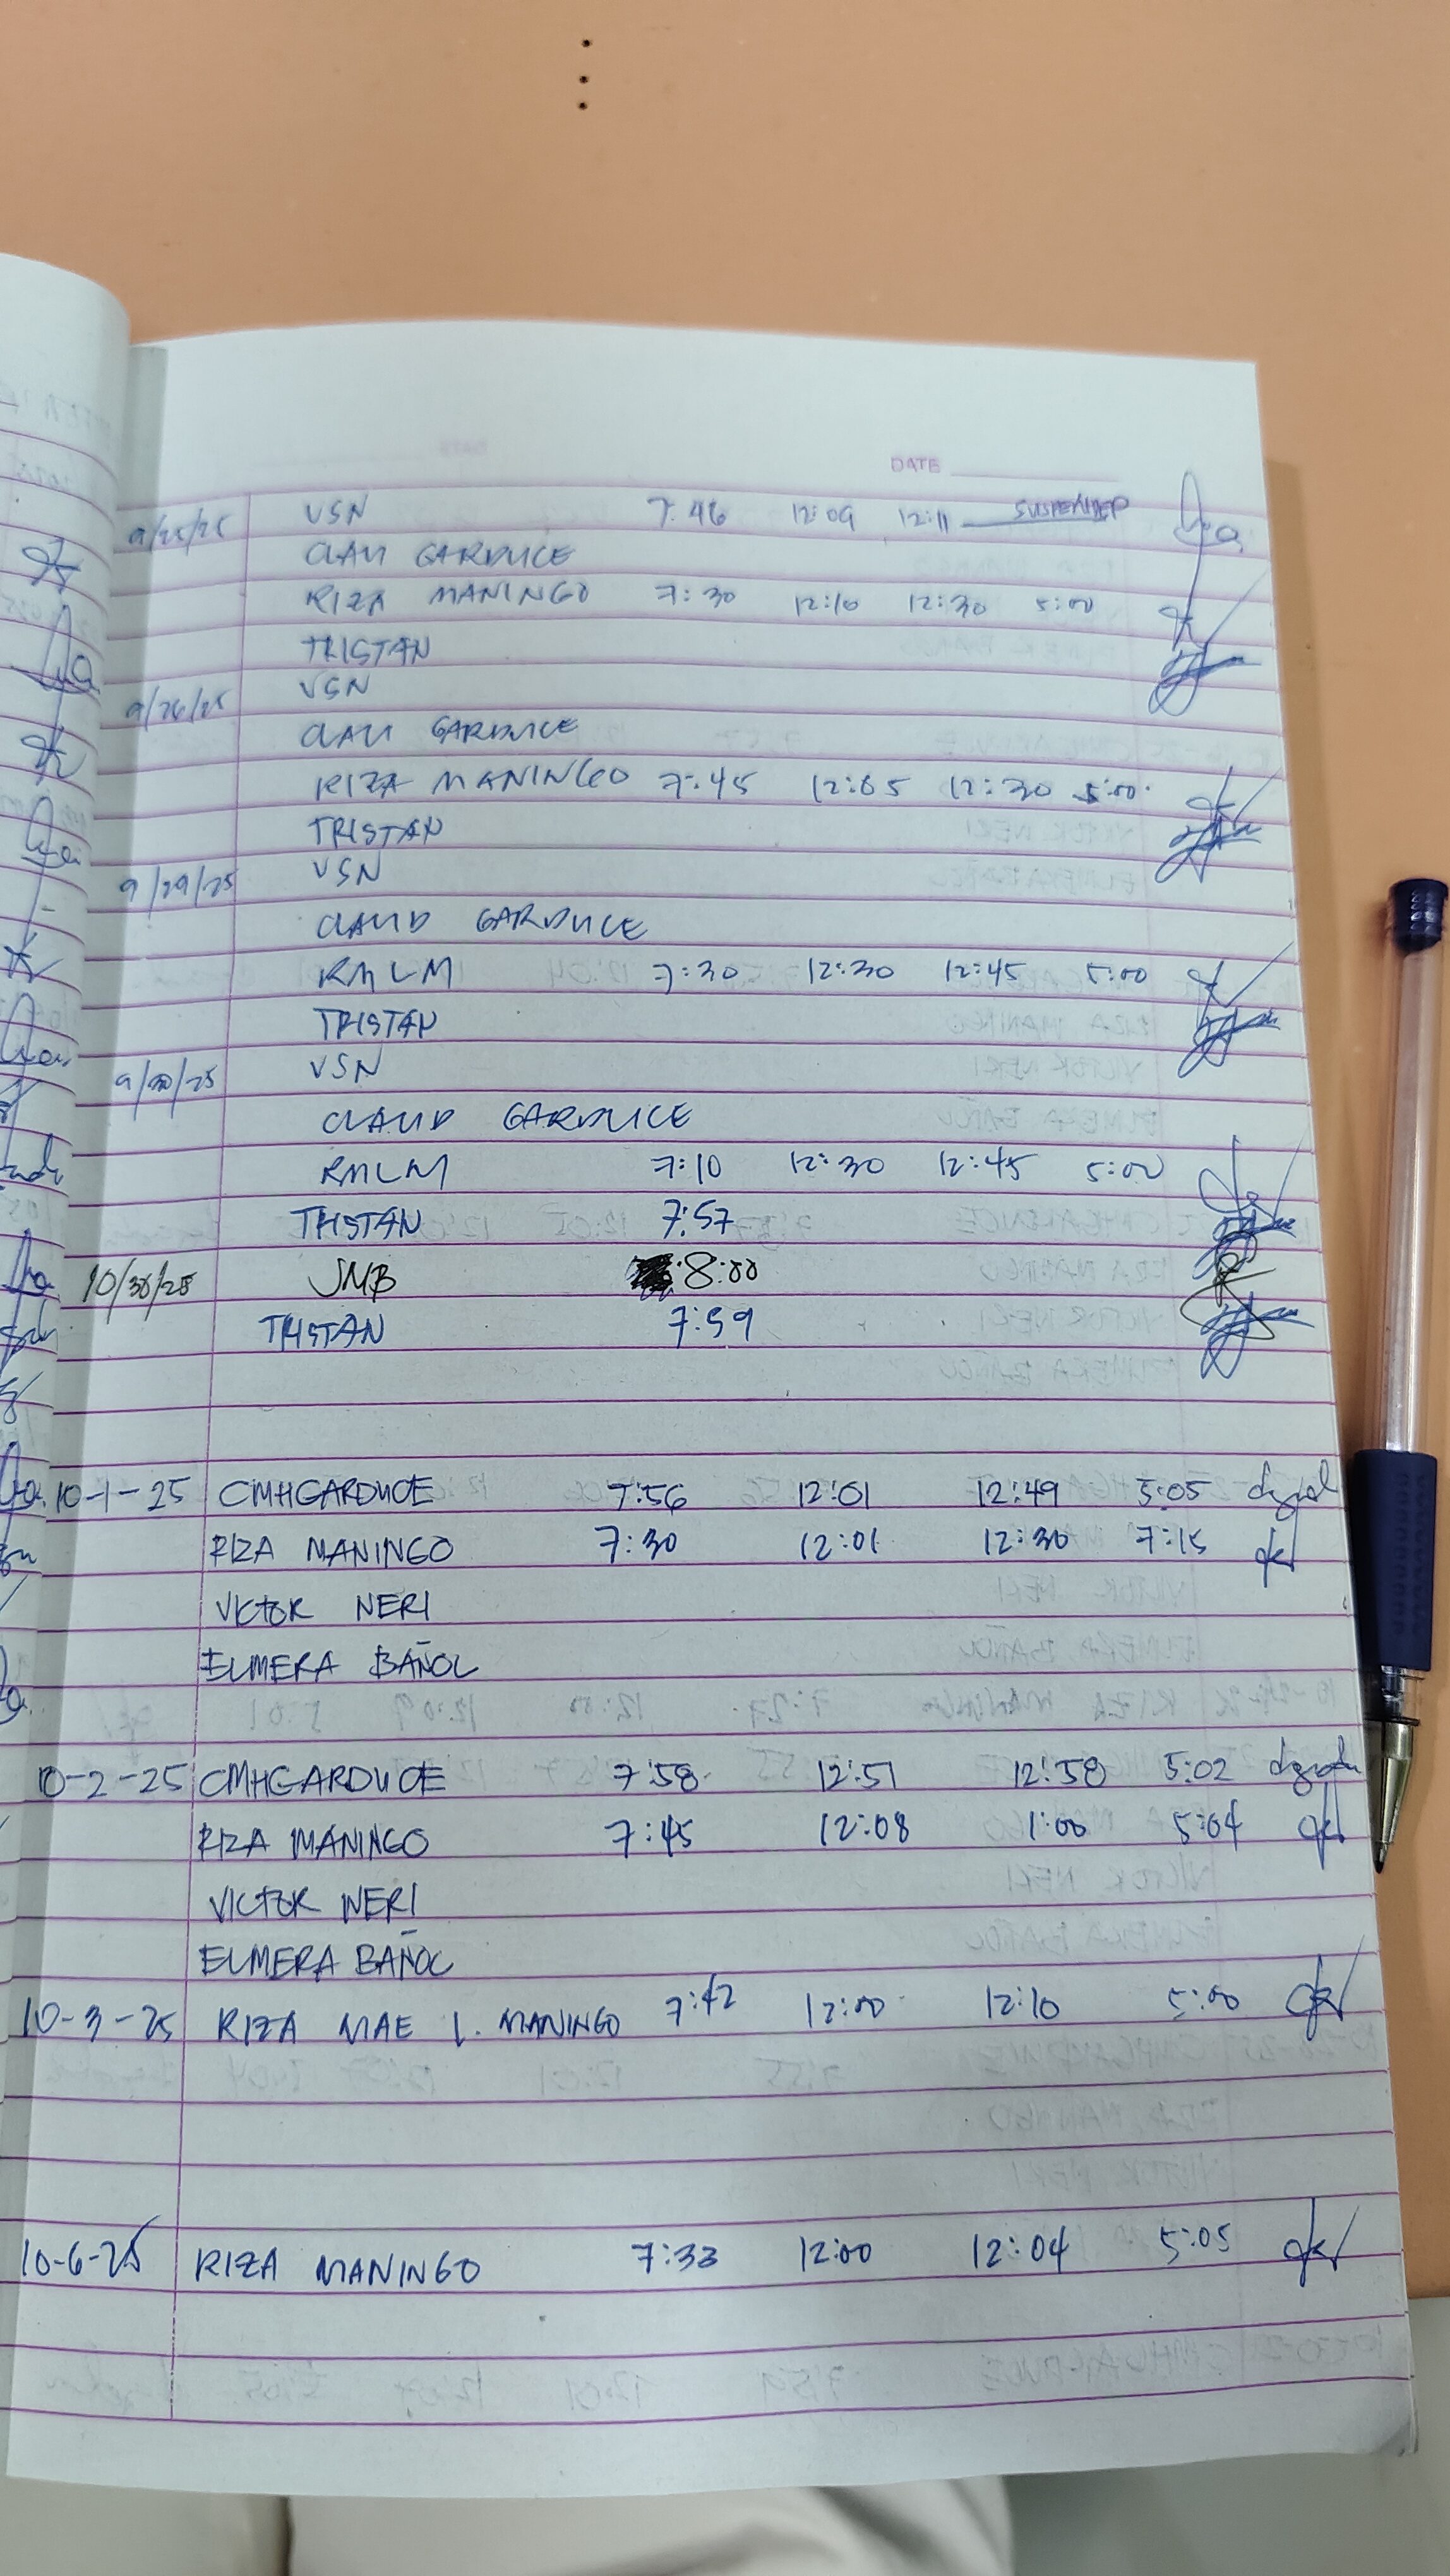 DATE
9/25/25 VSN 7:46 12:09 12:11 SUSPENDED
CLAU GARDUCE
RIZA MANINGO 7:30 12:10 12:30 5:00
TRISTAN
9/26/25 VSN
CLAU GARDUCE
RIZA MANINGO 7:45 12:05 12:30 5:00
TRISTAN
9/29/25 VSN
CLAUD GARDUCE
RMLM 7:30 12:30 12:45 5:00
TRISTAN
9/30/25 VSN
CLAUD GARDUCE
RMLM 7:10 12:30 12:45 5:00
TRISTAN 7:57
10/30/25 JMB 8:00
TRISTAN 7:59
10-1-25 CMHGARDUCE 7:56 12:01 12:49 5:05
RIZA MANINGO 7:30 12:01 12:30 7:15
VICTOR NERI
ELMERA BAÑOC
10-2-25 CMHGARDUCE 7:58 12:51 12:58 5:02
RIZA MANINGO 7:45 12:08 1:00 5:04
VICTOR NERI
ELMERA BAÑOC
10-3-25 RIZA MAE L. MANINGO 7:42 12:00 12:10 5:00
10-6-25 RIZA MANINGO 7:33 12:00 12:04 5:05